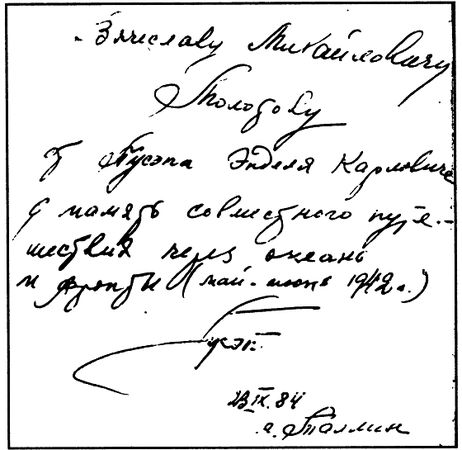 Вячеславу Михайловичу
Молотову
от Пусэпа Энделя Карловича
в память совместного путе-
шествия через океаны
и фронты (май-июнь 1942 г.)
Пусэп
23.IX.84
г. Таллин